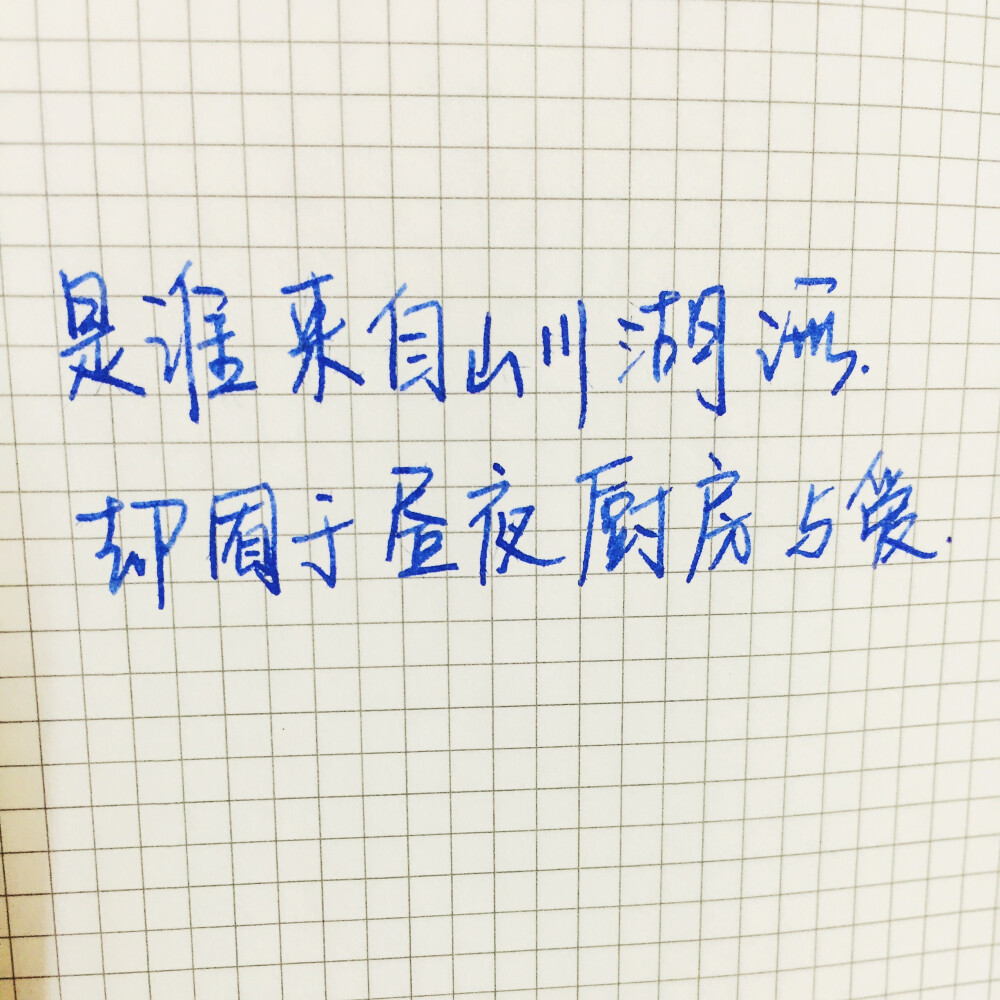 是谁来自山川湖海.
却囿于昼夜厨房与爱.